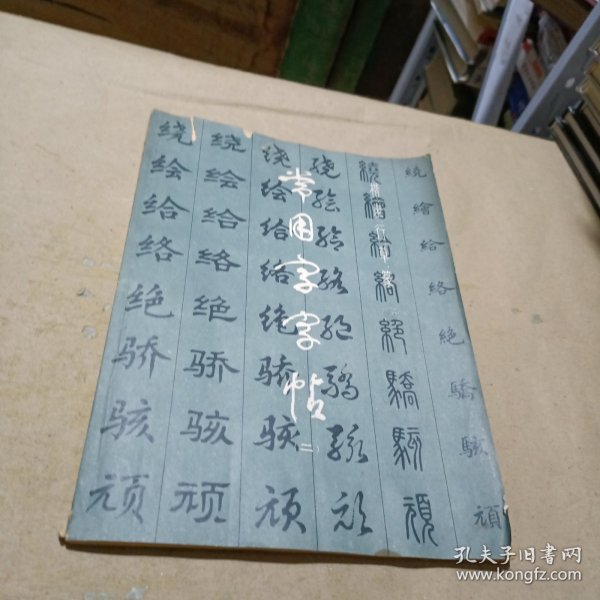 常用字字帖
(二)
楷隶行草篆
绕绘给络绝骄骇顽
绕绘给络绝骄骇顽
绕绘给络绝骄骇顽
繞繪給絡絶驕駭頑
繞繪給絡絶驕駭頑
繞繪給絡絶驕駭頑
孔夫子旧书网
www.kongfz.com